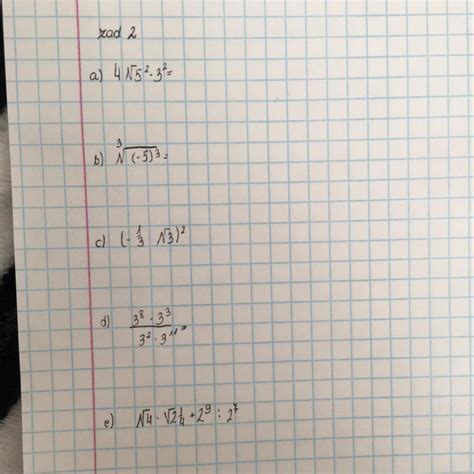 zad 2
a) 4√5² · 3² =
b) ³√(-5)³ =
c) (-1/3 √3)²
d) 3⁸ · 3³ / 3² · 3¹¹ =
e) √4 · √2 1/4 + 2⁹ : 2⁷